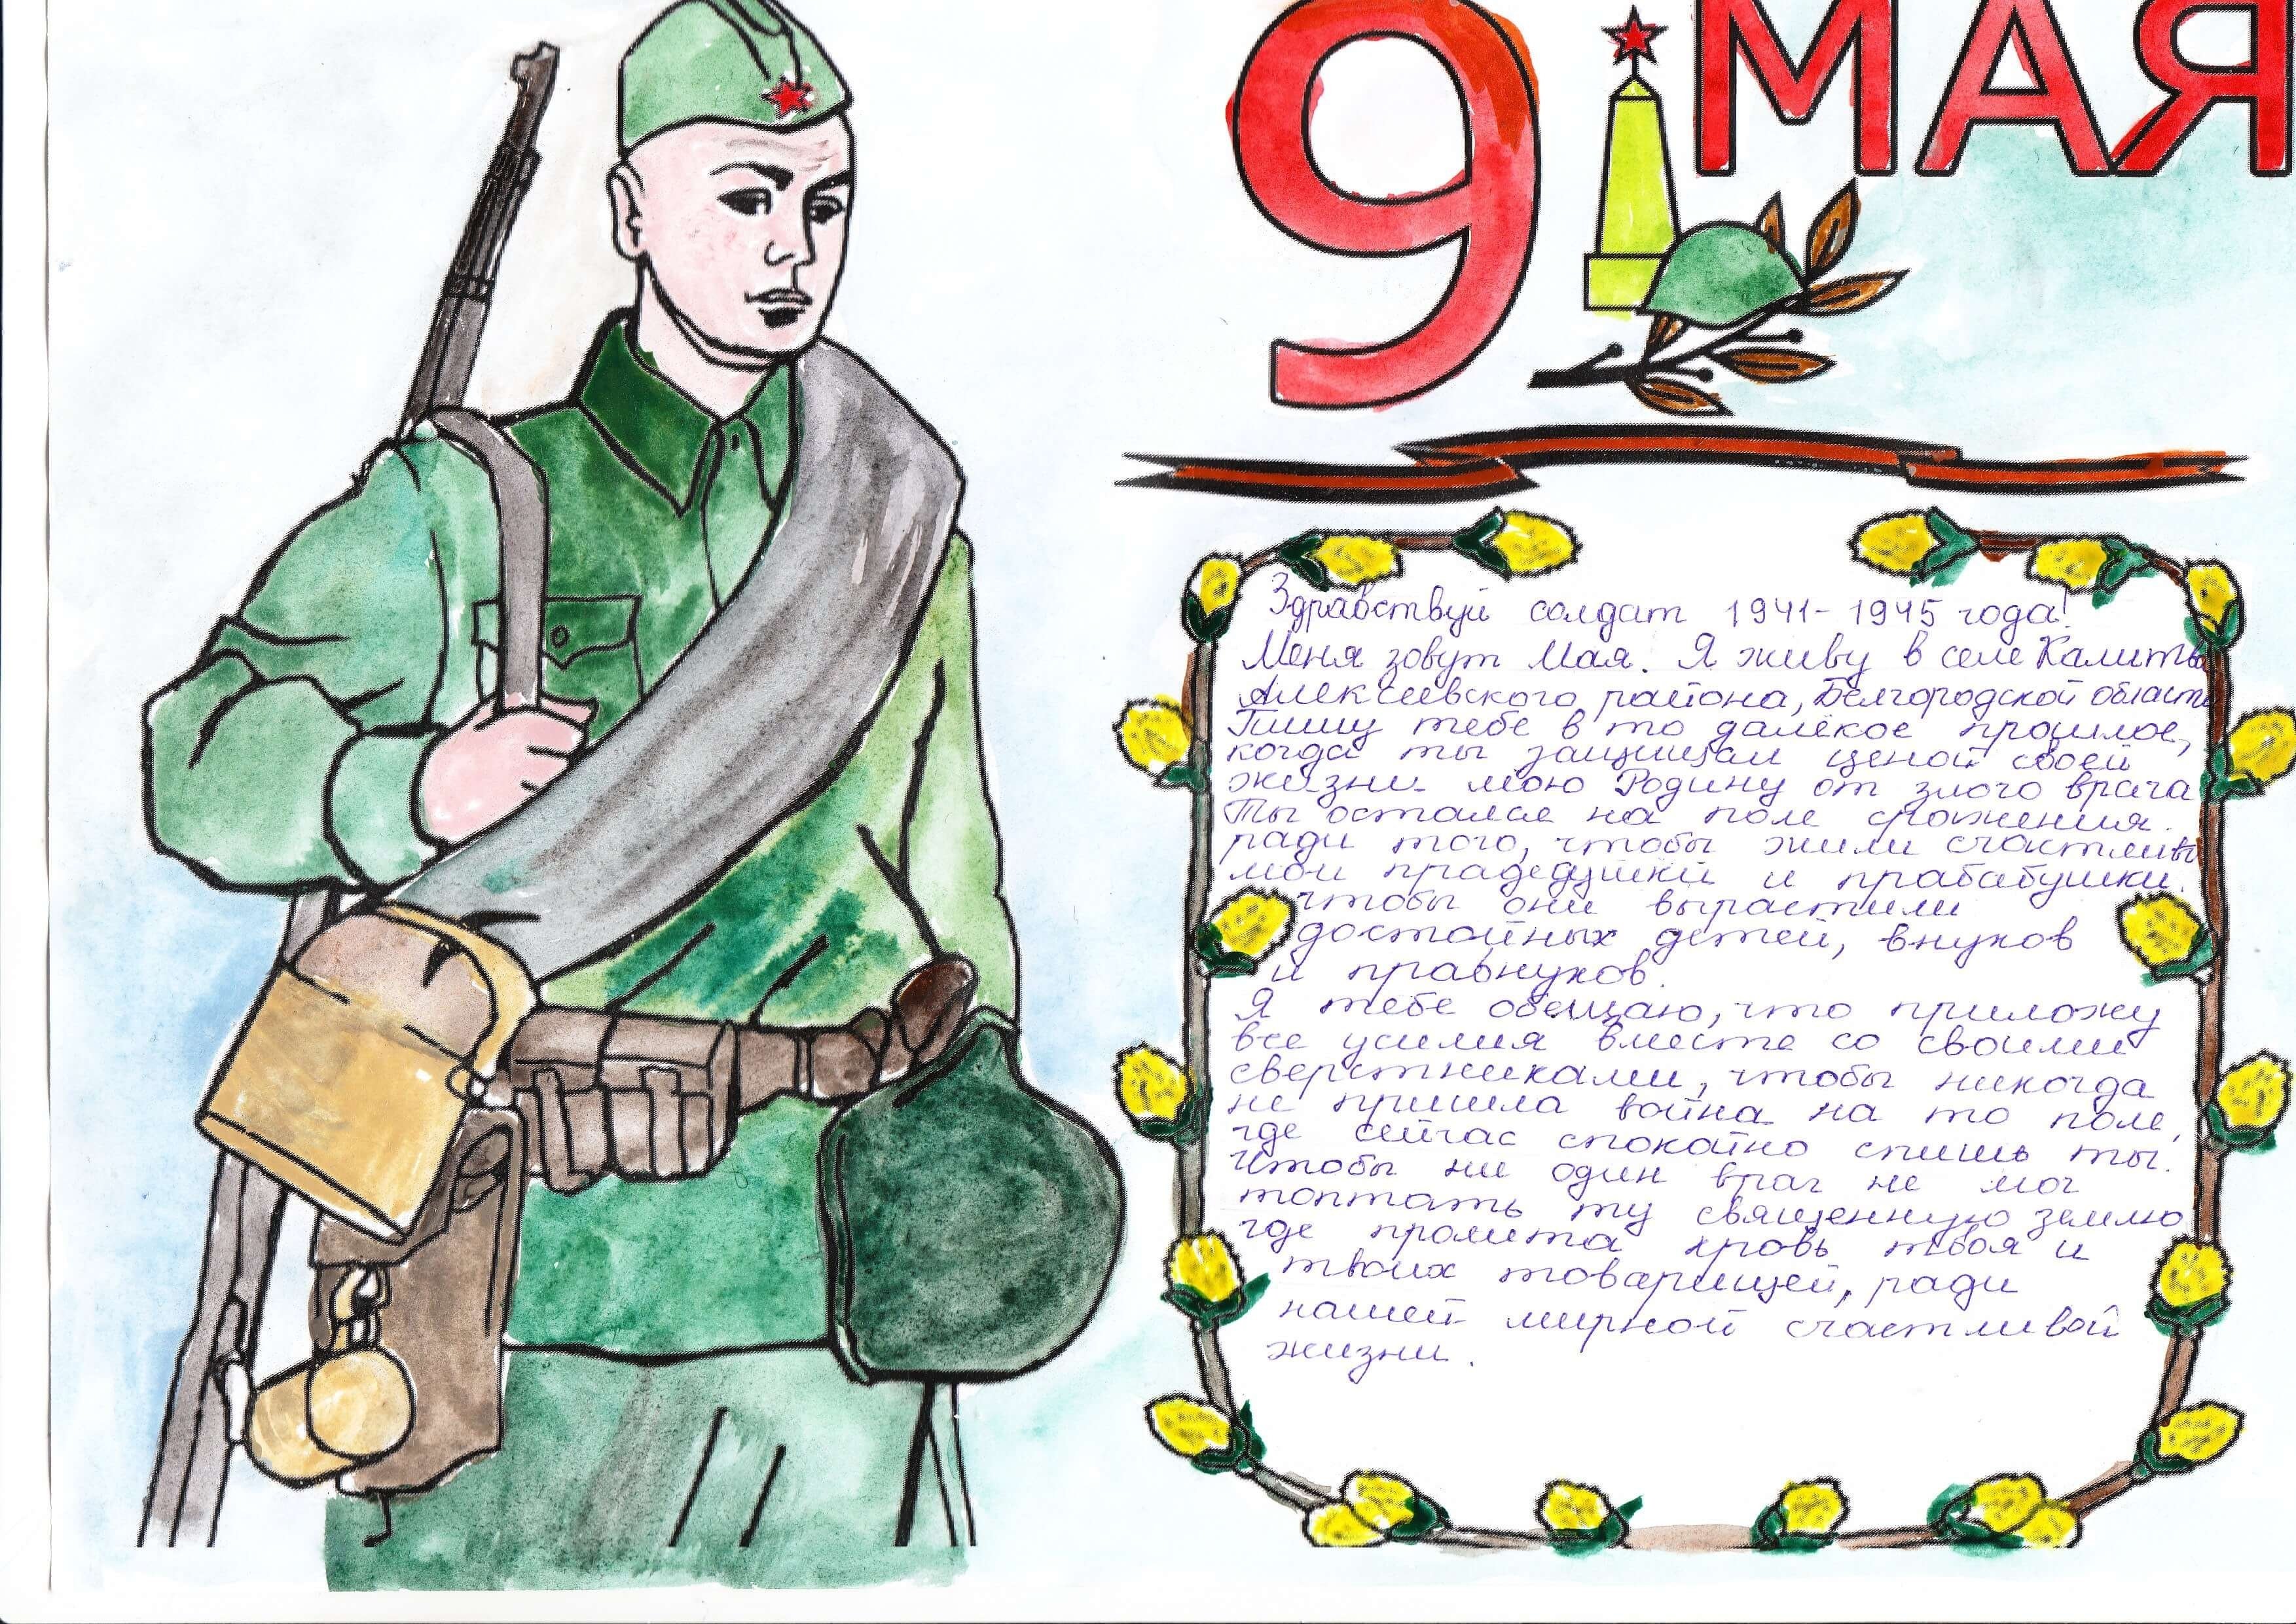 9 МАЯ
Здравствуй солдат 1941-1945 года!
Меня зовут Мая. Я живу в селе Калитва
Алексеевского района, Белгородской области
Пишу тебе в то далёкое прошлое,
когда ты защищал ценой своей
жизни мою Родину от злого врага
Ты остался на поле сражения.
ради того, чтобы жили счастливо
мои прадедушки и прабабушки.
чтобы они вырастили
достойных детей, внуков
и правнуков.
Я тебе обещаю, что приложу
все усилия вместе со своими
сверстниками, чтобы никогда
не пришла война на то поле,
где сейчас спокойно спишь ты.
Чтобы ни один враг не мог
топтать ту священную землю
где пролита кровь твоя и
твоих товарищей, ради
нашей мирной счастливой
жизни.